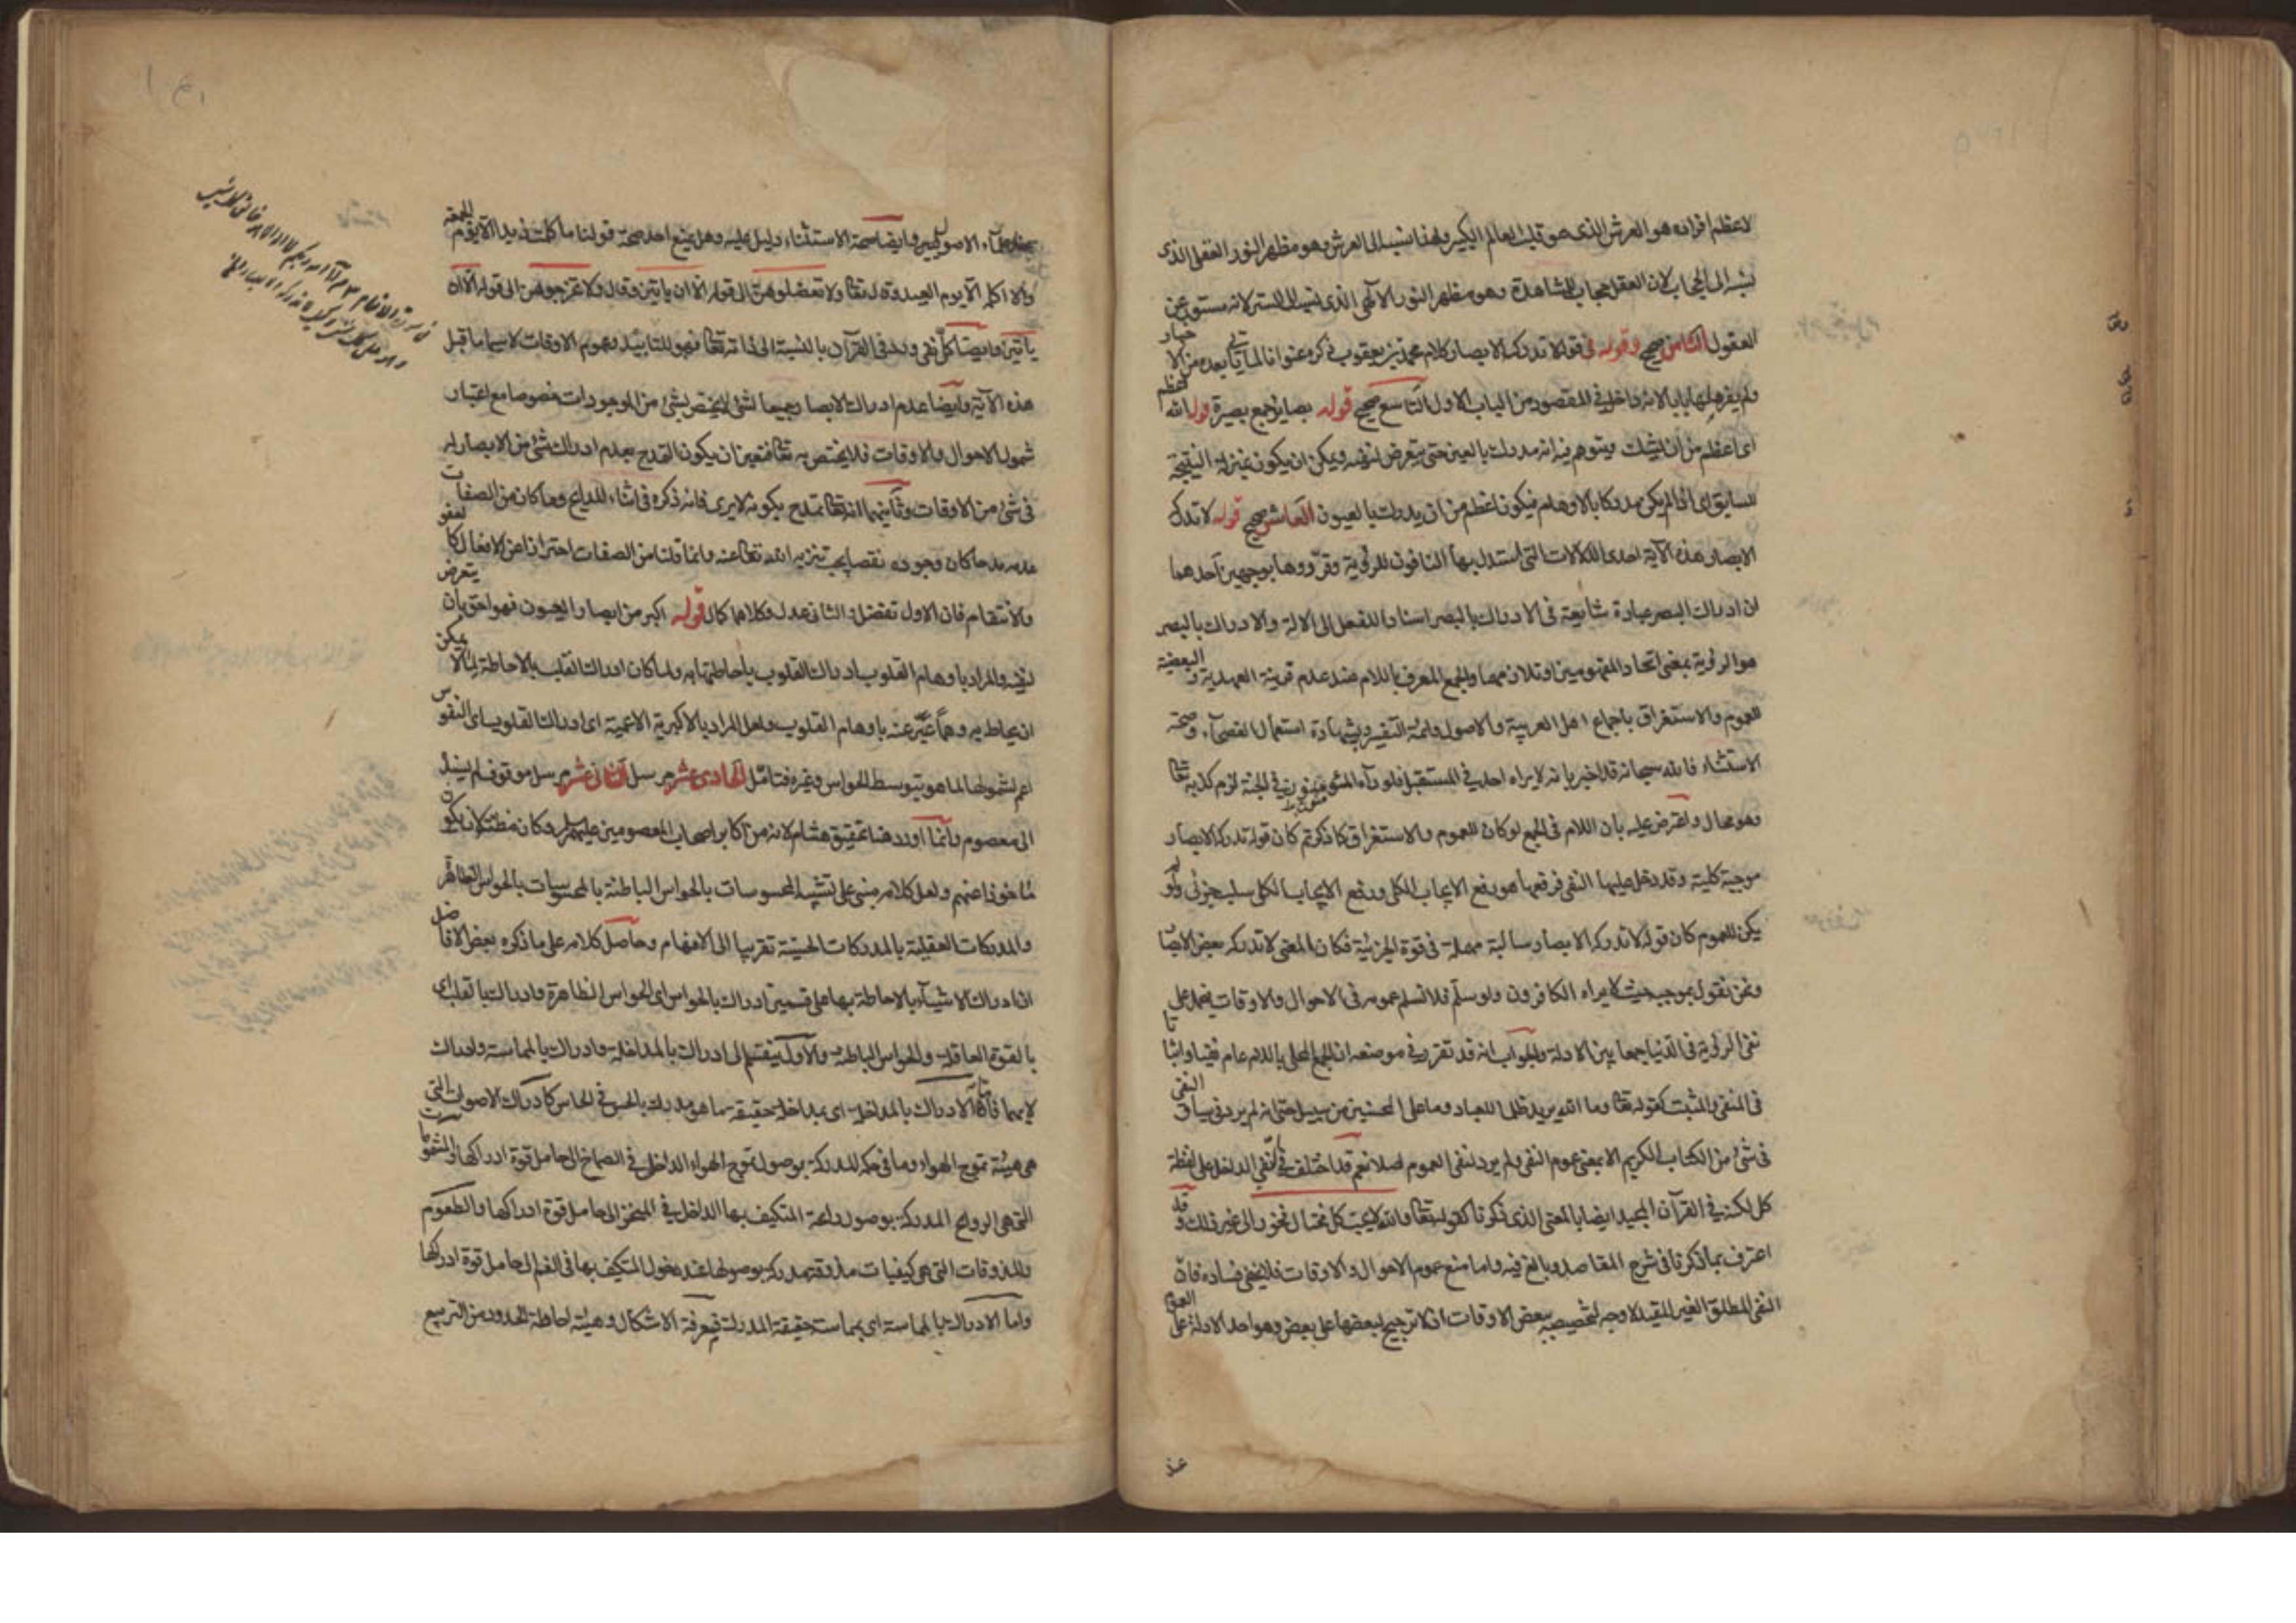 لاعظم افراده هو العرش الذى هو قلب العالم الكبير ولهذا نسب الى العرش وهو مظهر النور العقلى الذى
نسب الى الحجاب لان العقل حجاب المشاهدة وهو مظهر النور الالهى الذى نسب الى الستر لانه مستور عن
العقول الثامن صحيح وقوله فى قوله لا تدركه الابصار كلام محمد بن يعقوب ذكره عنوانا لما ياتى بعده من الاخبار
ولم يفرد لها بابا لانه داخل فى المقصود من الباب الاول التاسع صحيح قوله بصاير جمع بصيرة قوله الله اعظم
اى اعظم من ان يشك ويتوهم فيه انه مدرك بالعين حتى يتعرض لنفيه ويمكن ان يكون بمنزلة النتيجة
للسابق اى اذا لم يكن مدركا بالاوهام فيكون اعظم من ان يدرك بالعيون العاشر صحيح قوله لا تدركه
الابصار هذه الآية احدى الدلالات التى استدل بها النافون للرؤية وقرروها بوجهين احدهما
ان ادراك البصر عبارة شايعة فى الادراك بالبصر اسنادا للفعل الى الالة والادراك بالبصر
هو الرؤية بمعنى اتحاد المفهومين او تلازمهما والجمع المعرف باللام عند عدم قرينة العهدية والبعضية
للعموم والاستغراق باجماع اهل العربية والاصول وائمة التفسير وبشهادة استعمال الفصحآء وصحة
الاستثناء فالله سبحانه قد اخبر بانه لا يراه احد فى المستقبل فلو رآه المؤمنون فى الجنة لزم كذبه تعالى
وهو محال واعترض عليه بان اللام فى الجمع لو كان للعموم والاستغراق كما ذكرتم كان قوله تدركه الابصار
موجبة كلية وقد دخل عليها النفى فرفعها هو رفع الايجاب الكلى ورفع الايجاب الكلى سلب جزئى ولو لم
يكن للعموم كان قوله لا تدركه الابصار سالبة مهملة فى قوة الجزئية فكان المعنى لا تدركه بعض الابصار
ونحن نقول بموجبه حيث لا يراه الكافرون ولو سلم فلا نسلم عمومه فى الاحوال والاوقات فيحمل على
نفى الرؤية فى الدنيا جمعا بين الادلة والجواب انه قد تقرر فى موضعه ان الجمع المحلى باللام عام نفيا واثباتا
فى المنفى والمثبت كقوله تعالى وما الله يريد ظلما للعباد وما على المحسنين من سبيل حتى انه لم يرد فى سياق النفى
فى شئ من الكتاب الكريم الا بمعنى عموم النفى ولم يرد لنفى العموم اصلا نعم قد اختلف فى النفى الداخل على لفظة
كل لكنه فى القرآن المجيد ايضا بالمعنى الذى ذكرنا كقوله تعالى والله لا يحب كل مختال فخور الى غير ذلك وقد
اعترف بما ذكرنا فى شرح المقاصد وبالغ فيه واما منع عموم الاحوال والاوقات فلا يخفى فساده فان
النفى المطلق الغير المقيد لا وجه لتخصيصه ببعض الاوقات اذ لا ترجيح لبعضها على بعض وهو احد الادلة على العموم
علماء الاصول وايضا صحة الاستثناء دليل عليه وهل يمنع احد صحة قولنا ما كلمت زيدا الا يوم الجمعة
ولا اكلمه الا يوم العيد وقال تعالى ولا تعضلوهن الى قوله الا ان ياتين وقال ولا تخرجوهن الى قوله الا ان
ياتين وايضا كل نفى ورد فى القرآن بالنسبة الى ذاته تعالى فهو للتابيد وعموم الاوقات لا سيما ما قبل
هذه الآية وايضا عدم ادراك الابصار جميعا لشئ لا يختص بشئ من الموجودات خصوصا مع اعتبار
شمول الاحوال والاوقات فلا يختص به تعالى فتعين ان يكون التمدح بعدم ادراك شئ من الابصار له
فى شئ من الاوقات وثانيهما انه تعالى تمدح بكونه لا يرى فانه ذكره فى اثناء المدايح وما كان من الصفات
عدمه مدحا كان وجوده نقصا يجب تنزيه الله تعالى عنه وانما قلنا من الصفات احترازا عن الافعال كالعفو
والانتقام فان الاول تفضل والثانى عدل وكلاهما كمال قوله اكبر من ابصار العيون فهو احق بان يتعرض
لنفيه والمراد باوهام القلوب ادراك القلوب باحاطتها به ولما كان ادراك القلب بالاحاطة لما لا يمكن
ان يحاط به وهما عبر عنه باوهام القلوب ولعل المراد بالاكبرية الاعمية اى ادراك القلوب اى النفوس
اعم لشمولها لما هو بتوسط الحواس وغيره فتامل الحادى عشر مرسل الثانى عشر مرسل موقوف لم يسند
الى معصوم وانما اورد هنا تحقيق هشام لانه من اكابر اصحاب المعصومين عليهم السلام وكان مظنة لان يكون
ماخوذا عنهم ولعل كلامه مبنى على تشبيه المحسوسات بالحواس الباطنة بالمحسوسات بالحواس الظاهرة
والمدركات العقلية بالمدركات الحسية تقريبا الى الافهام وحاصل كلامه على ما ذكره بعض الافاضل
ان ادراك الاشيآء بالاحاطة بها على قسمين ادراك بالحواس اى الحواس الظاهرة وادراك بالقلب اى
بالقوة العاقلة والحواس الباطنة والاول ينقسم الى ادراك بالمداخلة وادراك بالمماسة وادراك
لا بهما فاما الادراك بالمداخلة اى بمداخلة حقيقة ما هو مدرك بالحس فى الحاس كادراك الاصوات التى
هى هيئة تموج الهواء وما فى حكمه المدركة بوصول تموج الهواء الداخل فى الصماخ الى حامل قوة ادراكها والمشمومات
التى هى الروايح المدركة بوصول رايحة المتكيف بها الداخل فى المنخر الى حامل قوة ادراكها والطعوم
والمذوقات التى هى كيفيات مذوقة مدركة بوصولها عند دخول المتكيف بها فى الفم الى حامل قوة ادراكها
واما الادراك بالمماسة اى بمماسة حقيقة المدرك فمعرفة الاشكال وهيئة احاطة الحدود من التربيع